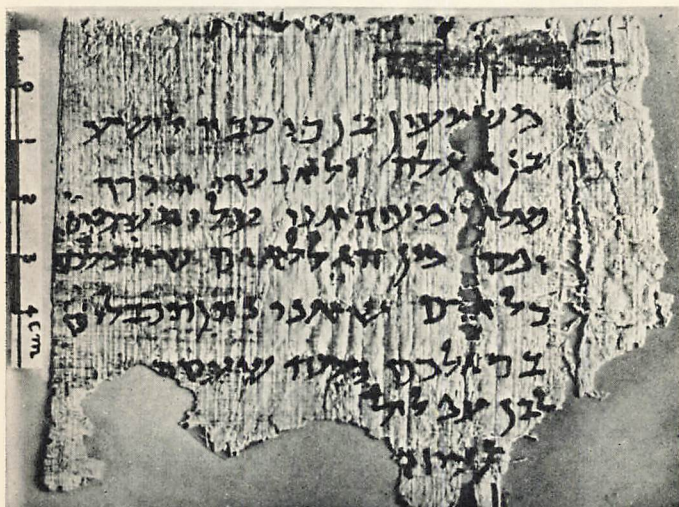 משמעון בן כוסבה לישע
בן גלגלה ולאנשי
שלום מעיד אני עלי תשמים
מן הגללאים שהצלכם
כל אדם שאני נתן תכבלים
ברגלכם כמה שעסתי
לבן עפלול
0
1
2
3
4 cm